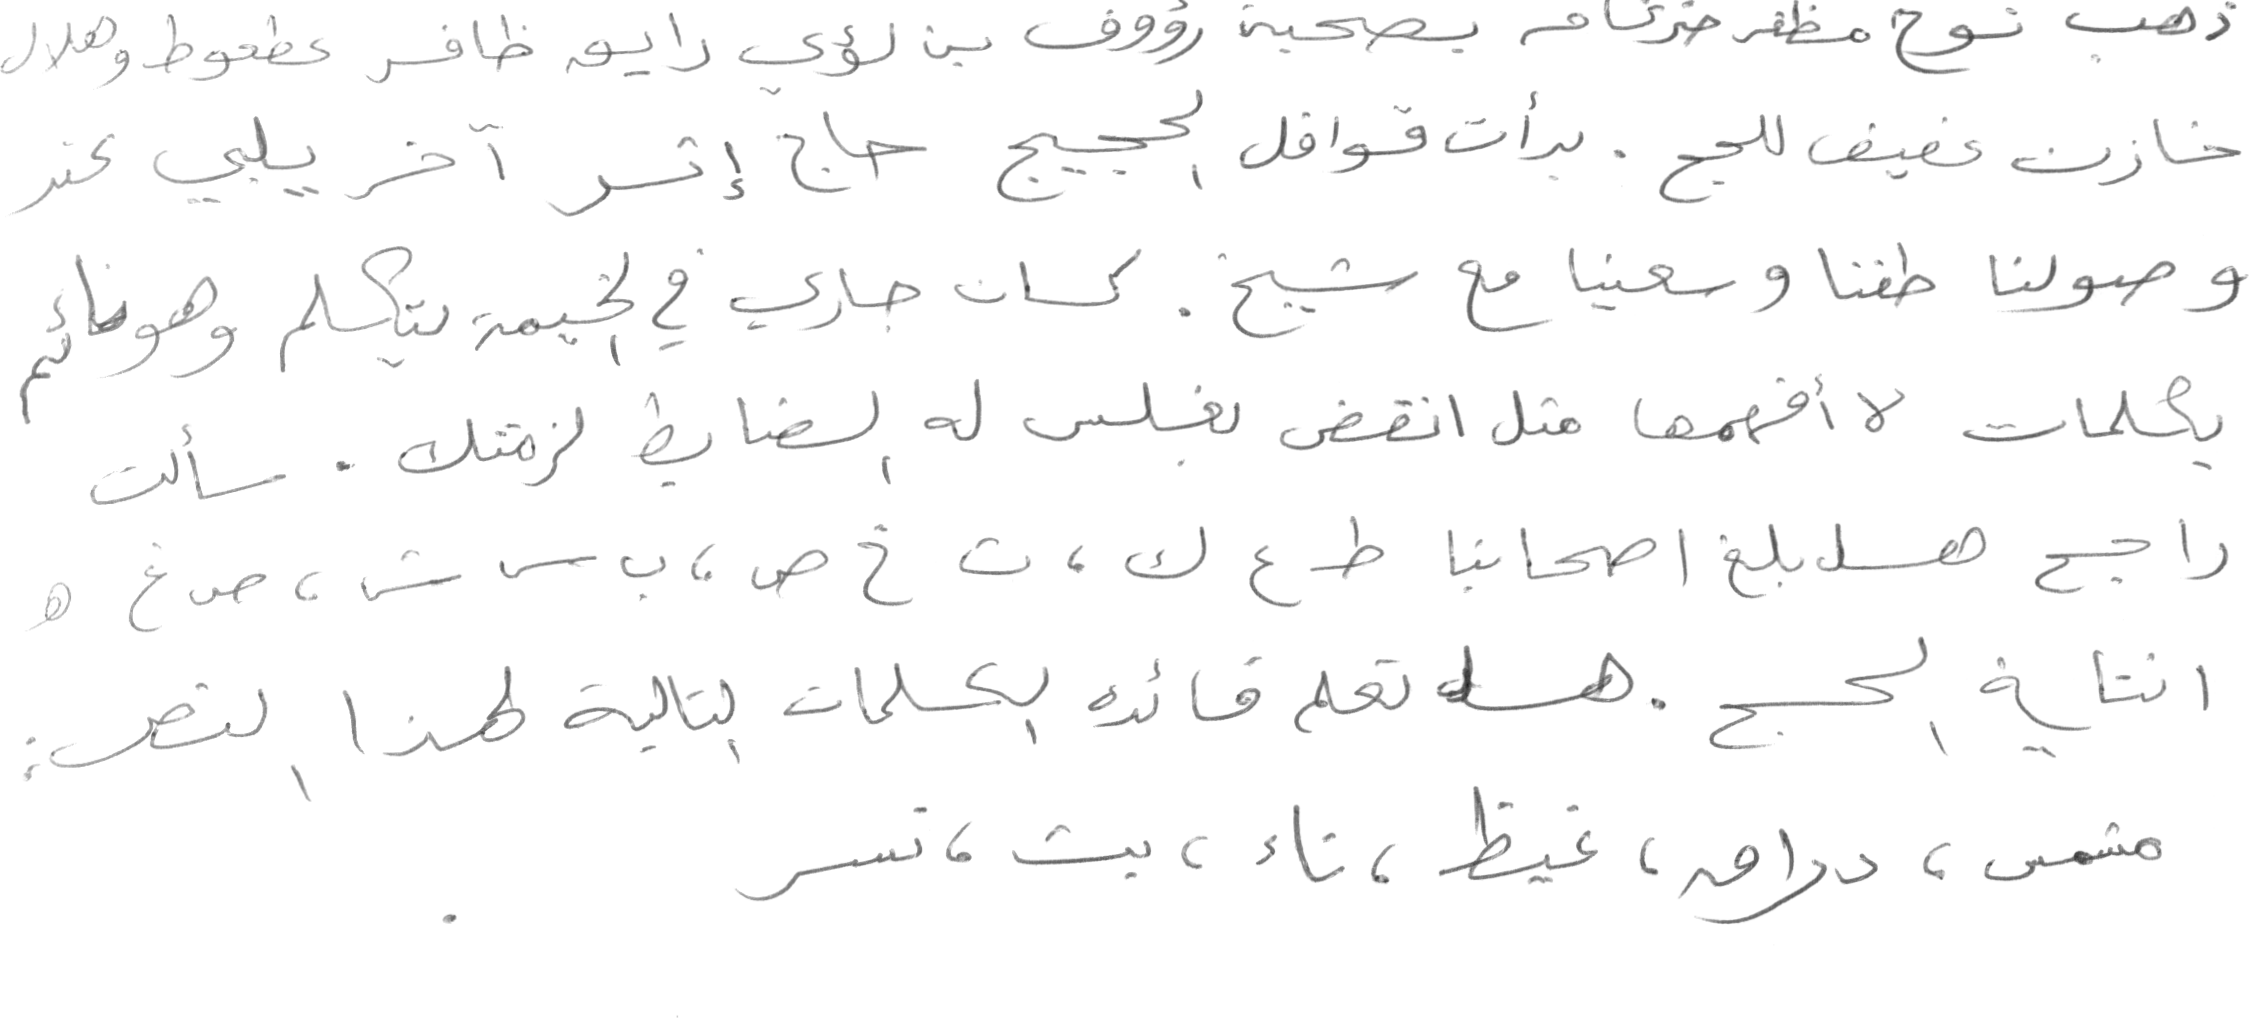 ذهب نوح مظفر ضرغام بصحبة رؤوف بن لؤي رايق ظافر عطعوط وهلال
خازن عفيف للحج . بدأت قوافل الحجيج حاج إثر آخر يلبي عند
وصولنا طفنا وسعينا مع شيخ . كان جاري في الخيمة يتكلم وهو نائم
بكلمات لا أفهمها مثل انقض بغلس له الضابط لزمتك . سألت
راجح هل بلغ اصحابنا ط ع ك ، ث خ ص ، ب س ش ، ص غ ه
انتاية الحج . هل تعلم فائدة الكلمات التالية لهذا النص :
مشمس ، دراق ، غيظ ، ناء ، بث ، نسر .